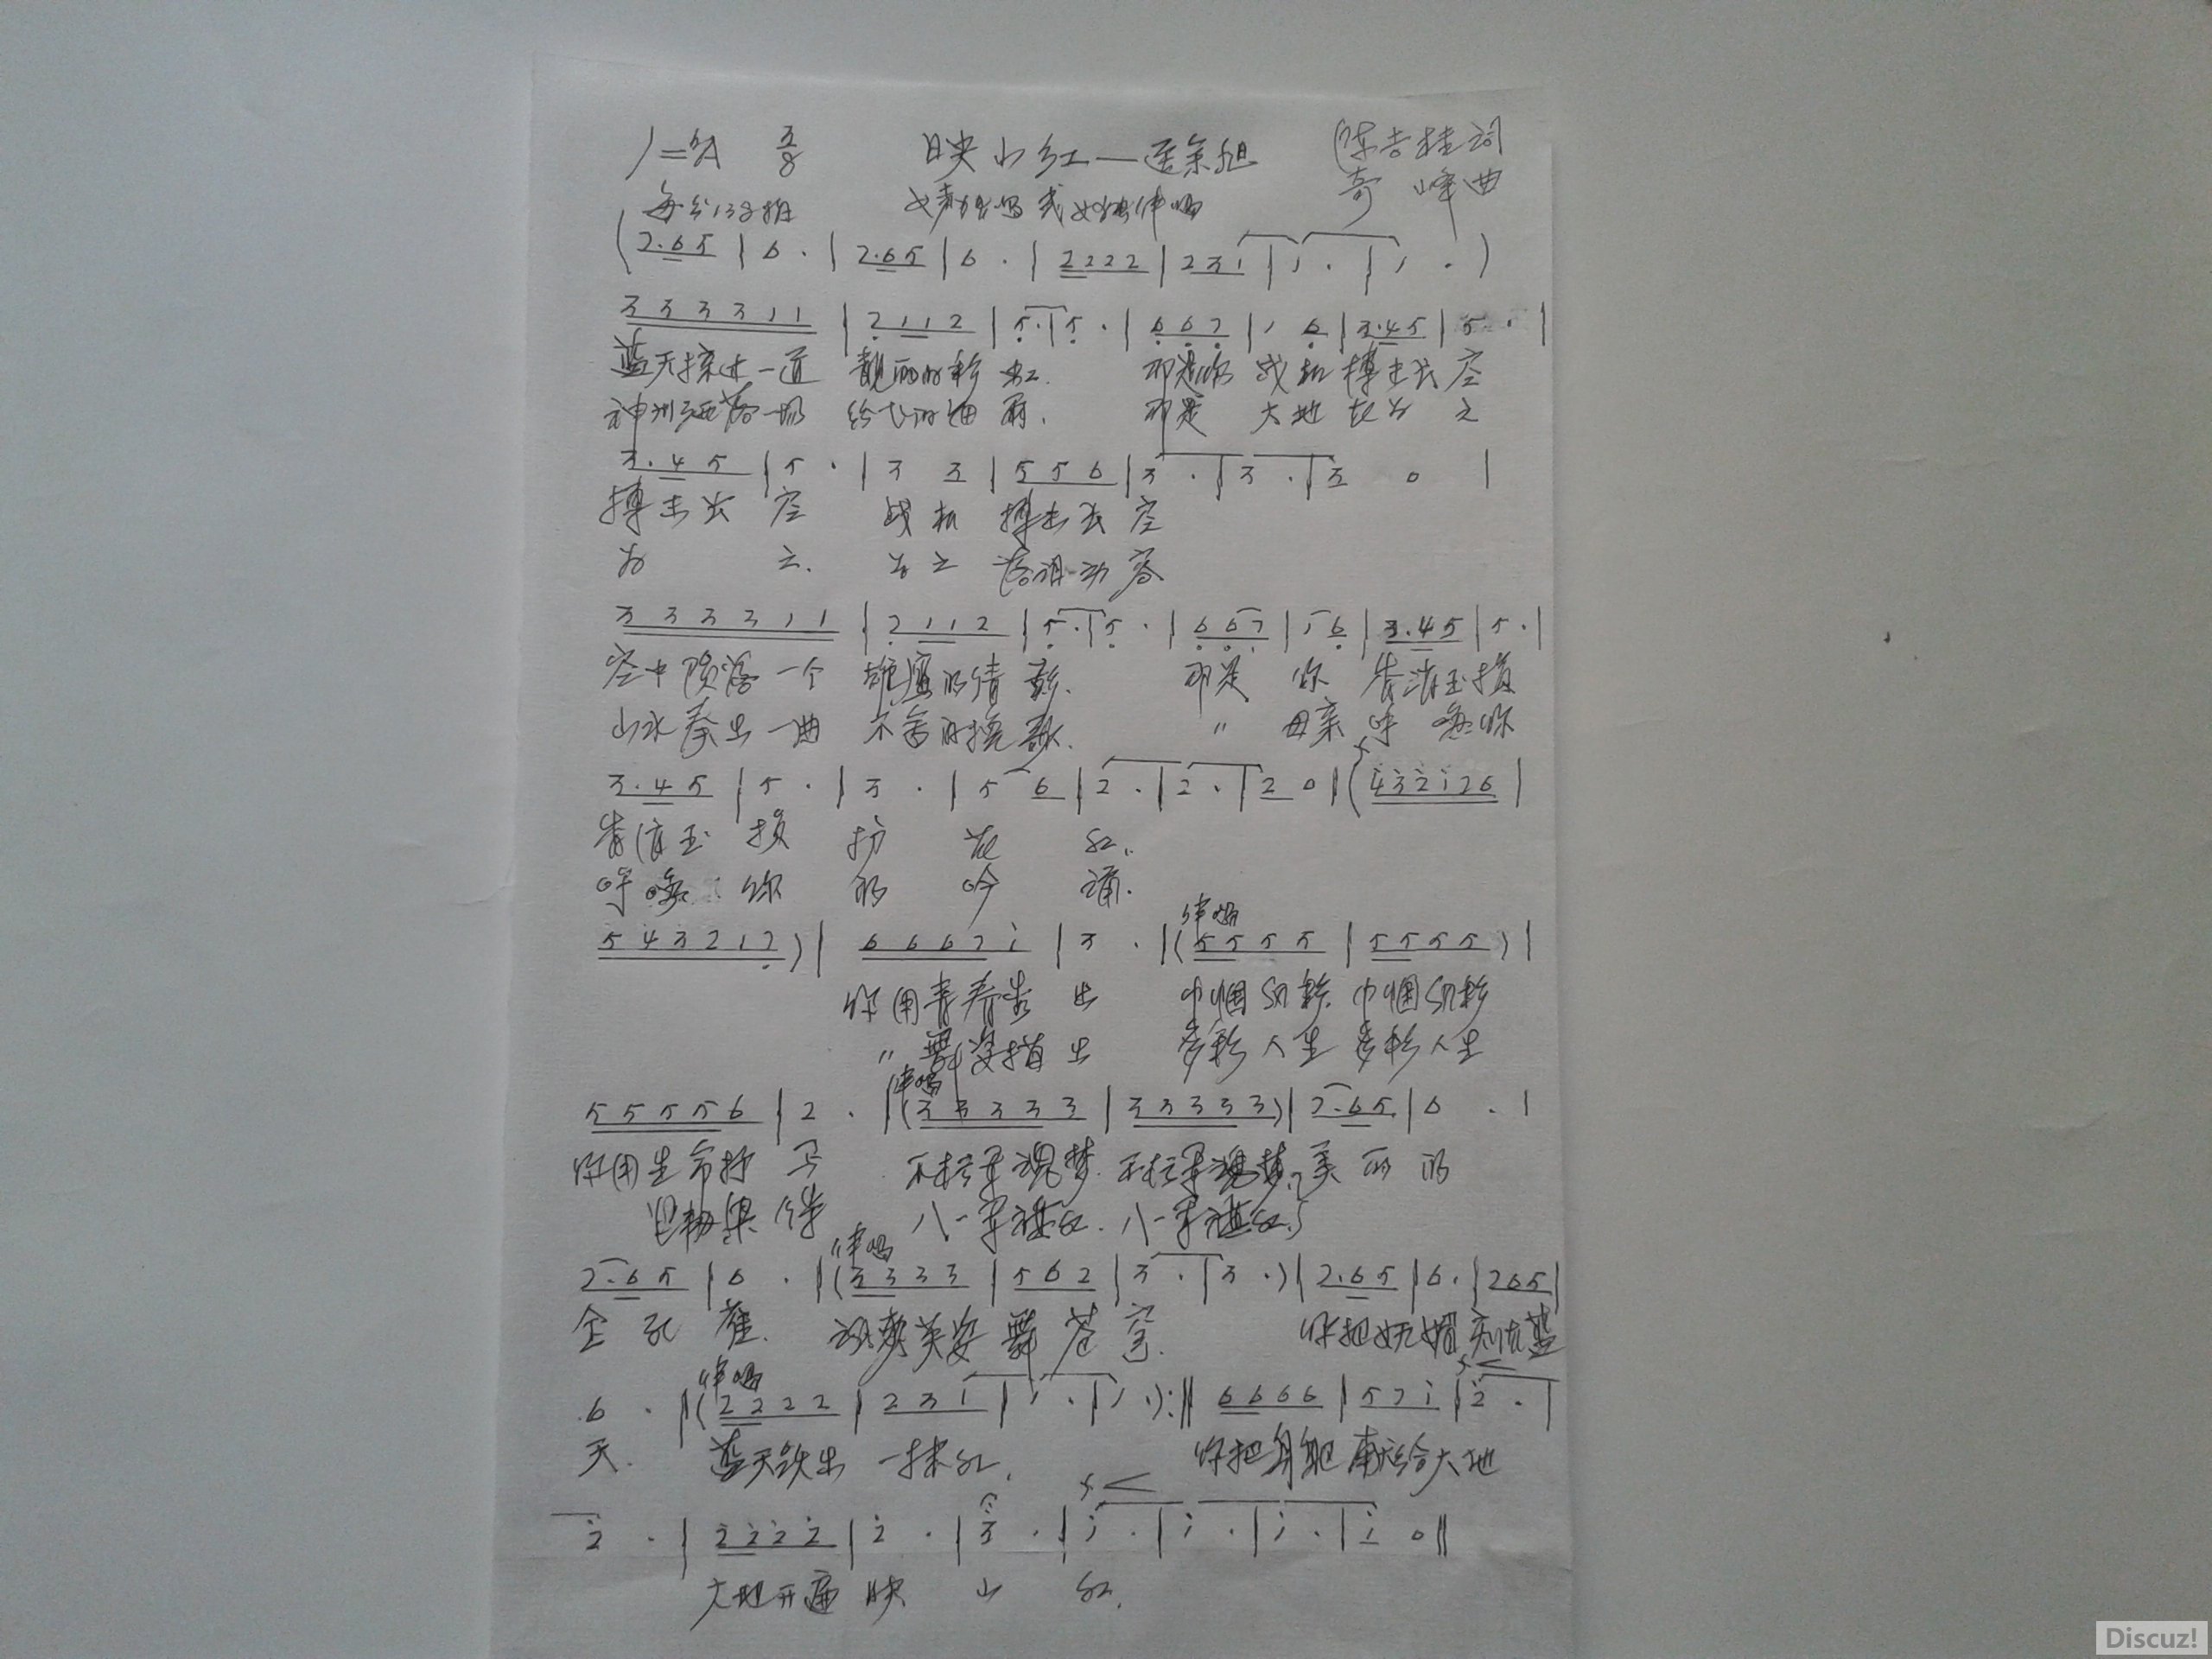 1=♭A 3/8 映山红—送余旭 陈吉桂词
每分138拍 女声独唱或女独伴唱 奇峰曲
(2.65 | 6 . | 2.65 | 6 . | 2222 | 231 | 1 . | 1 . )
333311 | 2112 | 5 . | 5 . | 667 | 1 6 | 3.45 | 5 . |
蓝天掠过一道 靓丽的彩虹. 那是你 战机 搏击长空
神州洒落一场 的细雨. 那是 大地 为之
3.45 | 5 . | 3 3 | 556 | 3 . | 3 . | 3 0 |
搏击长 空 战机 搏击长空
为 之. 为之 动容
333311 | 2112 | 5 . | 5 . | 667 | 1 6 | 3.45 | 5 . |
空中陨落一个 雄鹰的倩影. 那是 你 香消玉损
山水奏出一曲 不舍的挽歌. " 母亲 呼唤你
3.45 | 5 . | 3 . | 5 6 | 2 . | 2 . | 2 0 | (432126 |
香消玉 损 花 红.
呼唤 你 的 吟 诵.
543217) | 66671 | 3 . | 伴唱 (5555 | 5555) |
你用青春 出 巾帼 巾帼
" 舞姿描出 多彩人生 多彩人生
55556 | 2 . | 伴唱 (33333 | 33333) | 2.65 | 6 . |
你用生命抒写 不朽军魂梦. 不朽军魂梦. 美丽的
八一军旗红. 八一军旗红.
2.65 | 6 . | 伴唱 (3333 | 562 | 3 . | 3 .) | 2.65 | 6 . | 265 |
金孔雀. 飒爽英姿 舞苍穹. 你把妩媚 蓝
6 . | 伴唱 (2222 | 231 | 1 . | 1 .) :‖ 6666 | 571 | 2 . |
天. 蓝天 出 一抹红. 你把身躯 献给大地
2 . | 2222 | 2 . | 3 . | 1 . | 1 . | 1 . | 1 0 ‖
大地开遍 映 山 红.
Discuz!